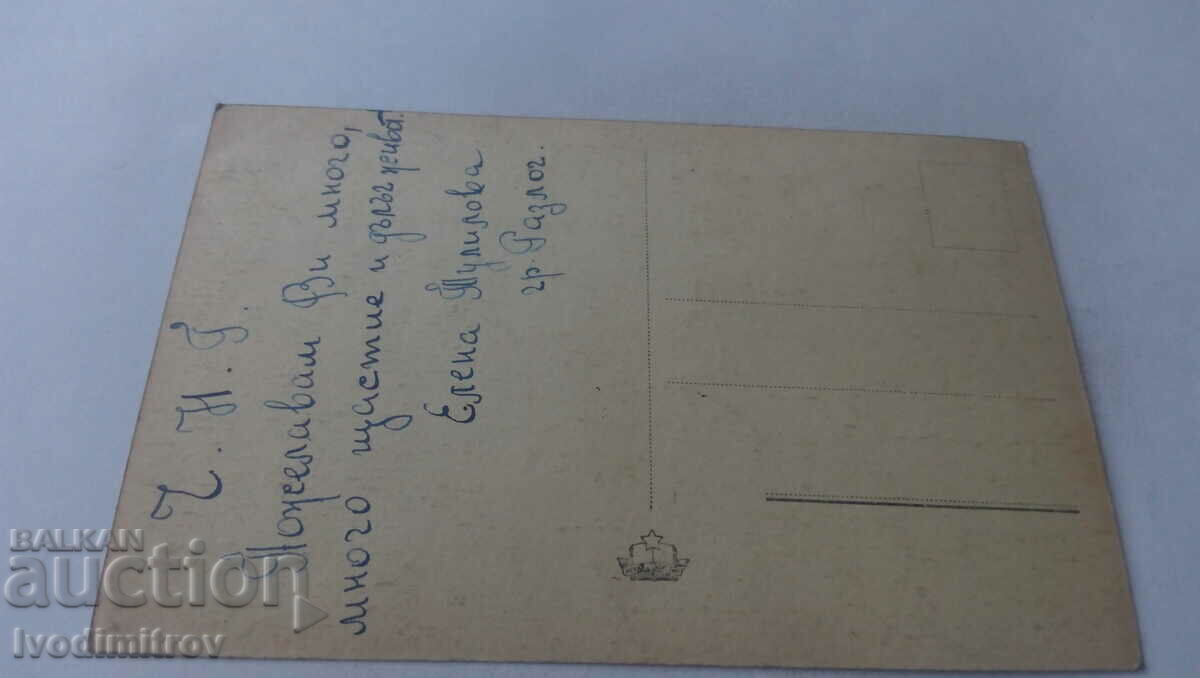 Ч. Н. Г.
Пожелавам Ви много,
много щастие и дълъг живот!
Елена Тупилова
гр. Разлог.
BALKAN
auction
Ivodimitrov